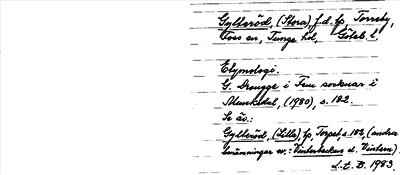 Gylleröd, (Stora), f.d. tp, Torreby,
Foss sn, Tunge hd, Göteb. l.
Etymologi.
G. Drougge i Fem socknar i
Munkedal, (1980), s. 182.
Se äv.:
Gylleröd, (Lilla), tp, Torpet, s. 182, (andra
benämningar av.: Vinterbacken el. Vintern).
L.t. B. 1983.